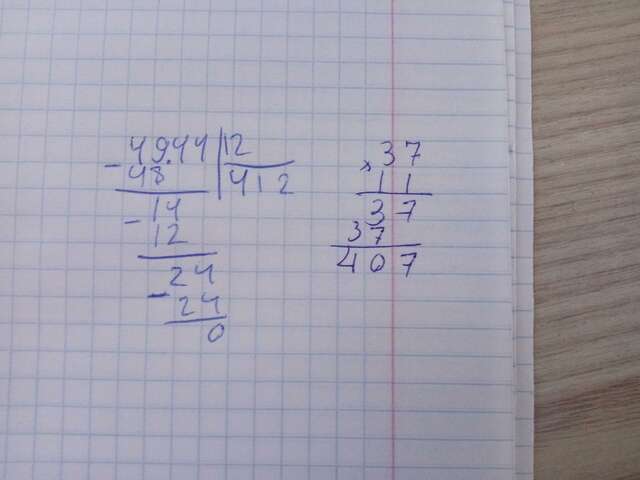 - 4944 | 12
48 | 412
- 14
12
- 24
24
0
× 37
11
37
37
407